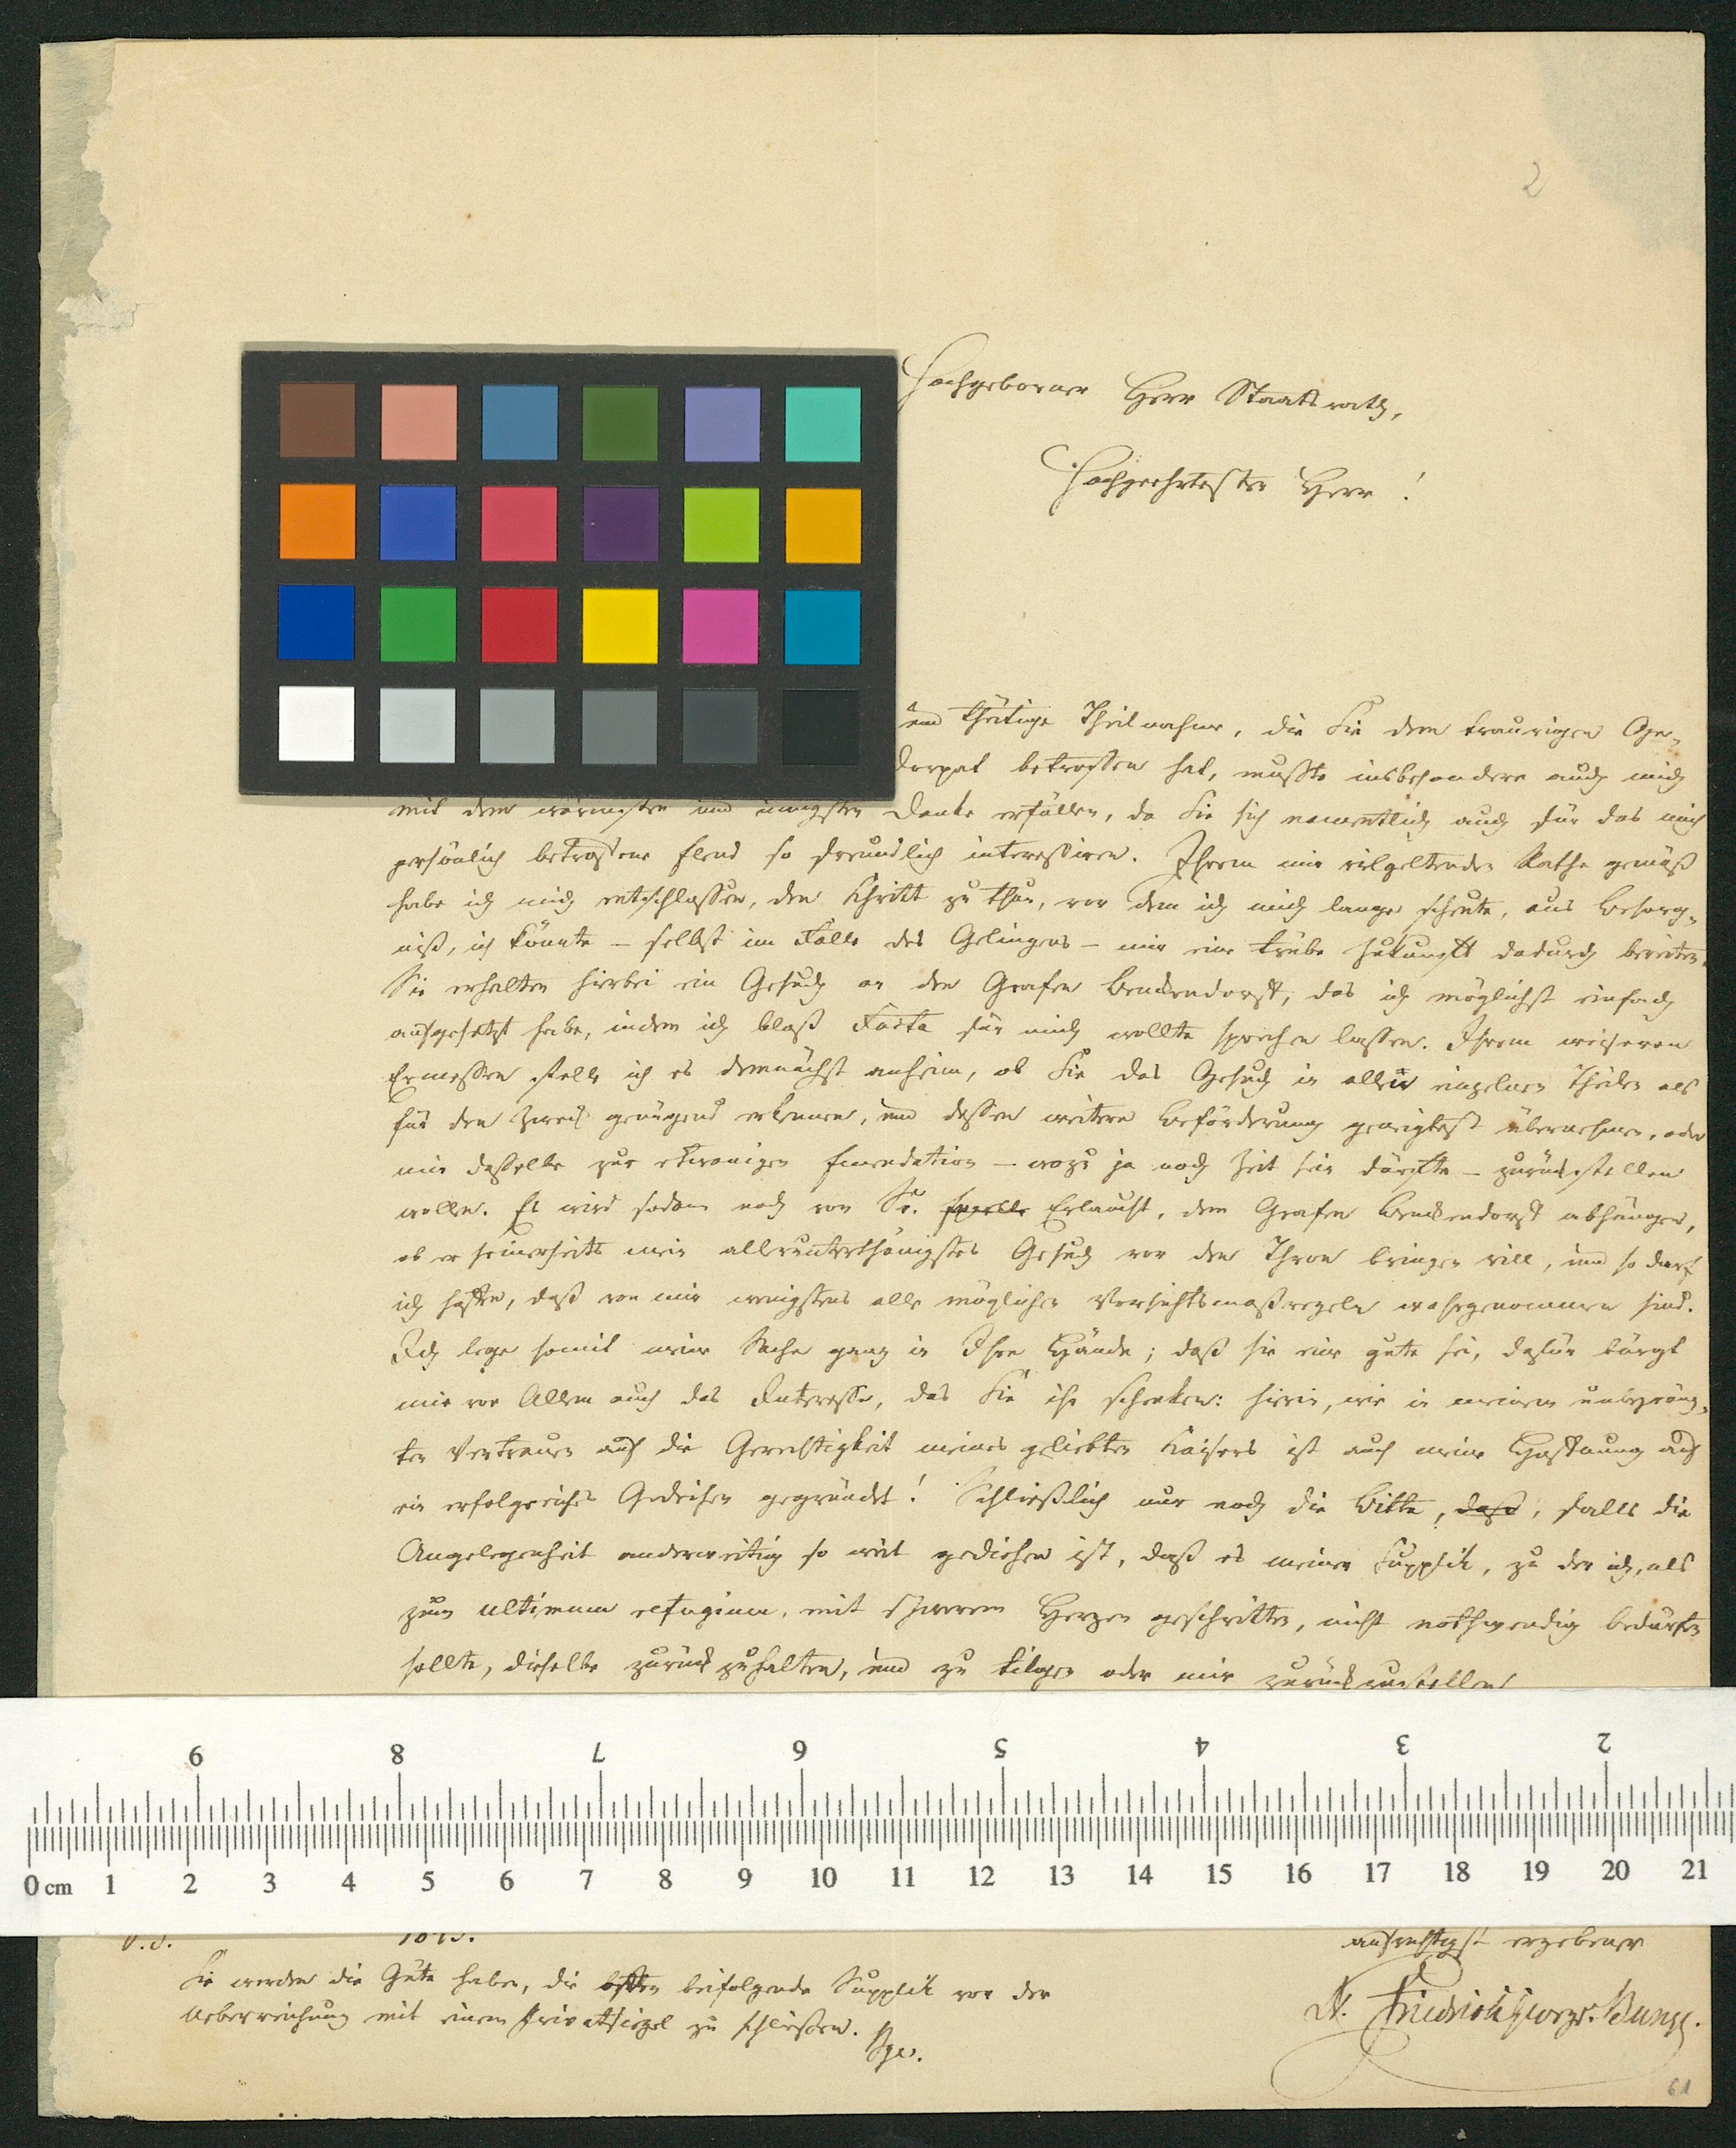 2
Hochgeborner Herr Staatsrath,
Hochgeehrtester Herr!
und thätige Theilnahme, die Sie dem traurigen Ge-
Dorpat betroffen hat, mußte insbesondere auch mich
mit dem wärmsten und innigsten Danke erfüllen, da Sie sich namentlich auch für das mich
persönlich betroffene Elend so freundlich interessiren. Ihrem mir vielgeltenden Rathe gemäß
habe ich mich entschlossen, den Schritt zu thun, vor dem ich mich lange scheute, aus Besorg-
niß, ich könnte – selbst im Falle des Gelingens – mir eine trübe Zukunft dadurch bereiten.
Sie erhalten hierbei ein Gesuch an den Grafen Benckendorff, das ich möglichst einfach
aufgesetzt habe, indem ich bloß Facta für mich wollte sprechen lassen. Ihrem weiseren
Ermessen stelle ich es demnächst anheim, ob Sie das Gesuch in allen einzelnen Theilen als
für den Zweck genügend erkennen, und dessen weitere Beförderung geneigtest übernehmen, oder
mir dasselbe zur etwanigen Emendation – wozu ja noch Zeit sein dürfte – zurückstellen
wollen. Es wird sodann noch von Sr. Erlaucht, dem Grafen Benckendorff abhängen,
ob er seinerseits mein allerunterthänigstes Gesuch vor den Thron bringen will, und so darf
ich hoffen, daß von mir wenigstens alle möglichen Vorsichtsmaßregeln wahrgenommen sind.
Ich lege somit meine Sache ganz in Ihre Hände; daß sie eine gute sei, dafür bürgt
mir vor Allem auch das Interesse, das Sie ihr schenken: hierin, wie in meinem unbegränz-
ten Vertrauen auf die Gerechtigkeit meines geliebten Kaisers ist auch meine Hoffnung auf
ein erfolgreiches Gedeihen gegründet! Schließlich nur noch die Bitte, daß, falls die
Angelegenheit anderweitig so weit gediehen ist, daß es meiner Supplik, zu der ich, als
zum ultimum refugium, mit schwerem Herzen geschritten, nicht nothwendig bedürfen
sollte, dieselbe zurückzuhalten, und zu tilgen oder mir zurückzustellen!
9 8 7 6 5 4 3 2
0 cm 1 2 3 4 5 6 7 8 9 10 11 12 13 14 15 16 17 18 19 20 21
aufrichtigst ergebener
Sie werden die Güte haben, die offen beifolgende Supplik vor der
Ueberreichung mit einem Privatsiegel zu schließen.
Bge.
Dr. Friedrich Georg v. Bunge.
61